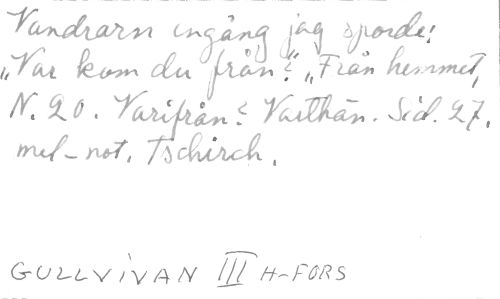 Vandrarn engång jag sporde:
„Var kom du från?“ „Från hemmet,
N. 20. Varifrån? Varthän. Sid. 27.
mel-not. Tschirch.
GULLVIVAN III H-FORS